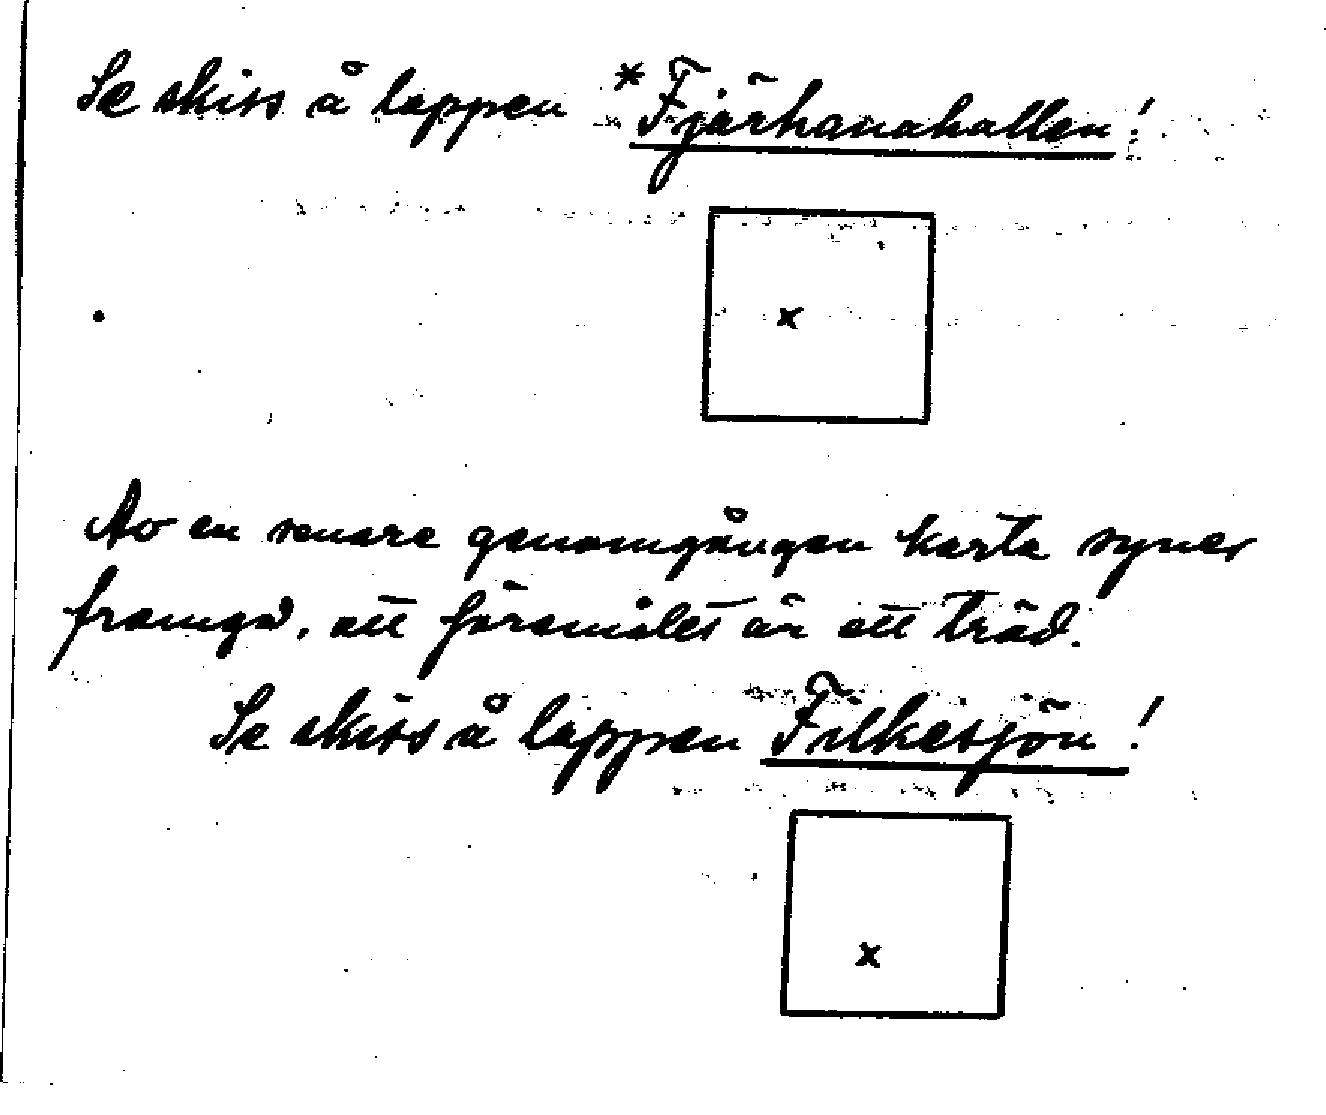 Se skiss å lappen *Fjärhanahallen!
x
Av en senare genomgången karta synes
framgå, att föremålet är ett träd.
Se skiss å lappen Filkesjön!
x